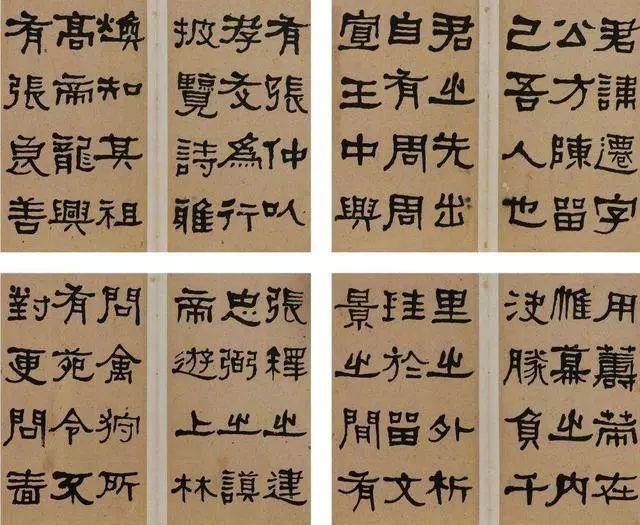 君諱遷字
公方陳留
己吾人也
君之先出
自有周周
宣王中興
有張仲以
孝友為行
披覽詩雅
煥知其祖
高帝龍興
有張良善
用籌策在
帷幕之內
決勝負千
里之外析
珪於留文
景之間有
張釋之建
忠弼之謨
帝遊上林
問禽狩所
有苑令不
對更問嗇